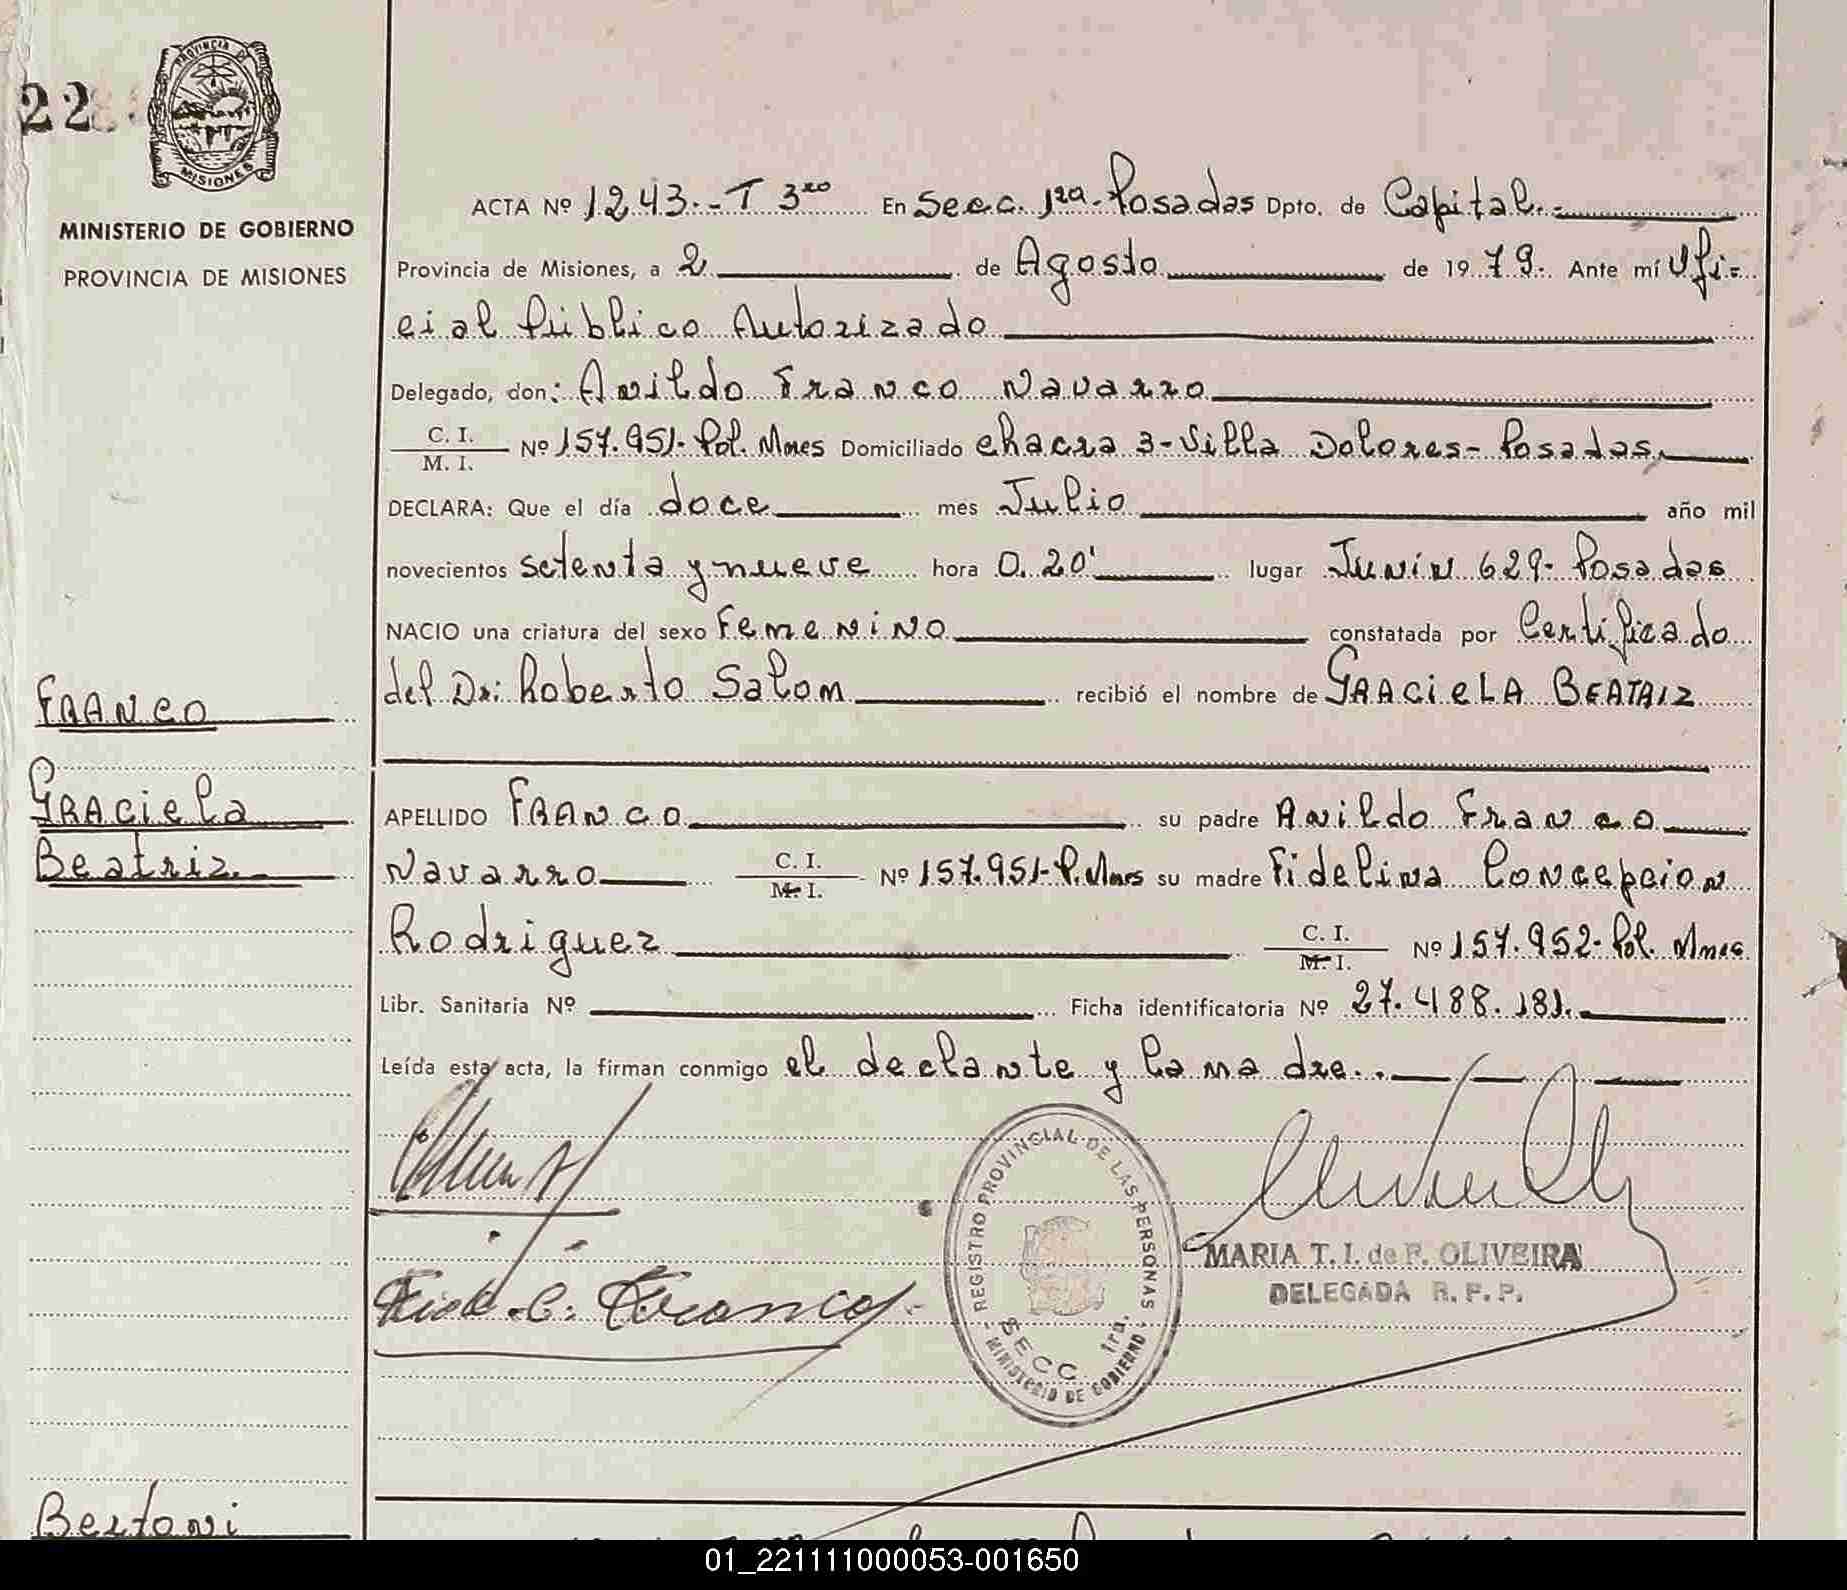 22
PROVINCIA DE
MISIONES
MINISTERIO DE GOBIERNO
PROVINCIA DE MISIONES
ACTA Nº 1243.- T 3ro En Secc. 1ra. Posadas Dpto. de Capital.-
Provincia de Misiones, a 2 de Agosto de 1979. Ante mí Ofi-
cial Público Autorizado
Delegado, don: Anildo Franco Navarro
C. I.
M. I. Nº 157.951- Pol. Mnes Domiciliado chacra 3- Villa Dolores- Posadas.
DECLARA: Que el día doce mes Julio año mil
novecientos setenta y nueve hora 0.20' lugar Junin 629- Posadas
NACIO una criatura del sexo Femenino constatada por Certificado
del Dr: Roberto Salom recibió el nombre de GRACIELA BEATRIZ
FRANCO
Graciela
Beatriz.
APELLIDO FRANCO su padre Anildo Franco
Navarro C. I.
M. I. Nº 157.951- P. Mnes su madre Fidelina Concepcion
Rodriguez C. I.
M. I. Nº 157.952- Pol. Mnes
Libr. Sanitaria Nº Ficha identificatoria Nº 27.488.181.
Leída esta acta, la firman conmigo el declante y la madre..
REGISTRO PROVINCIAL DE LAS PERSONAS
SECC. 1ra.
MINISTERIO DE GOBIERNO
MARIA T. I. de F. OLIVEIRA
DELEGADA R. P. P.
C. Franco
Bertoni
01_221111000053-001650